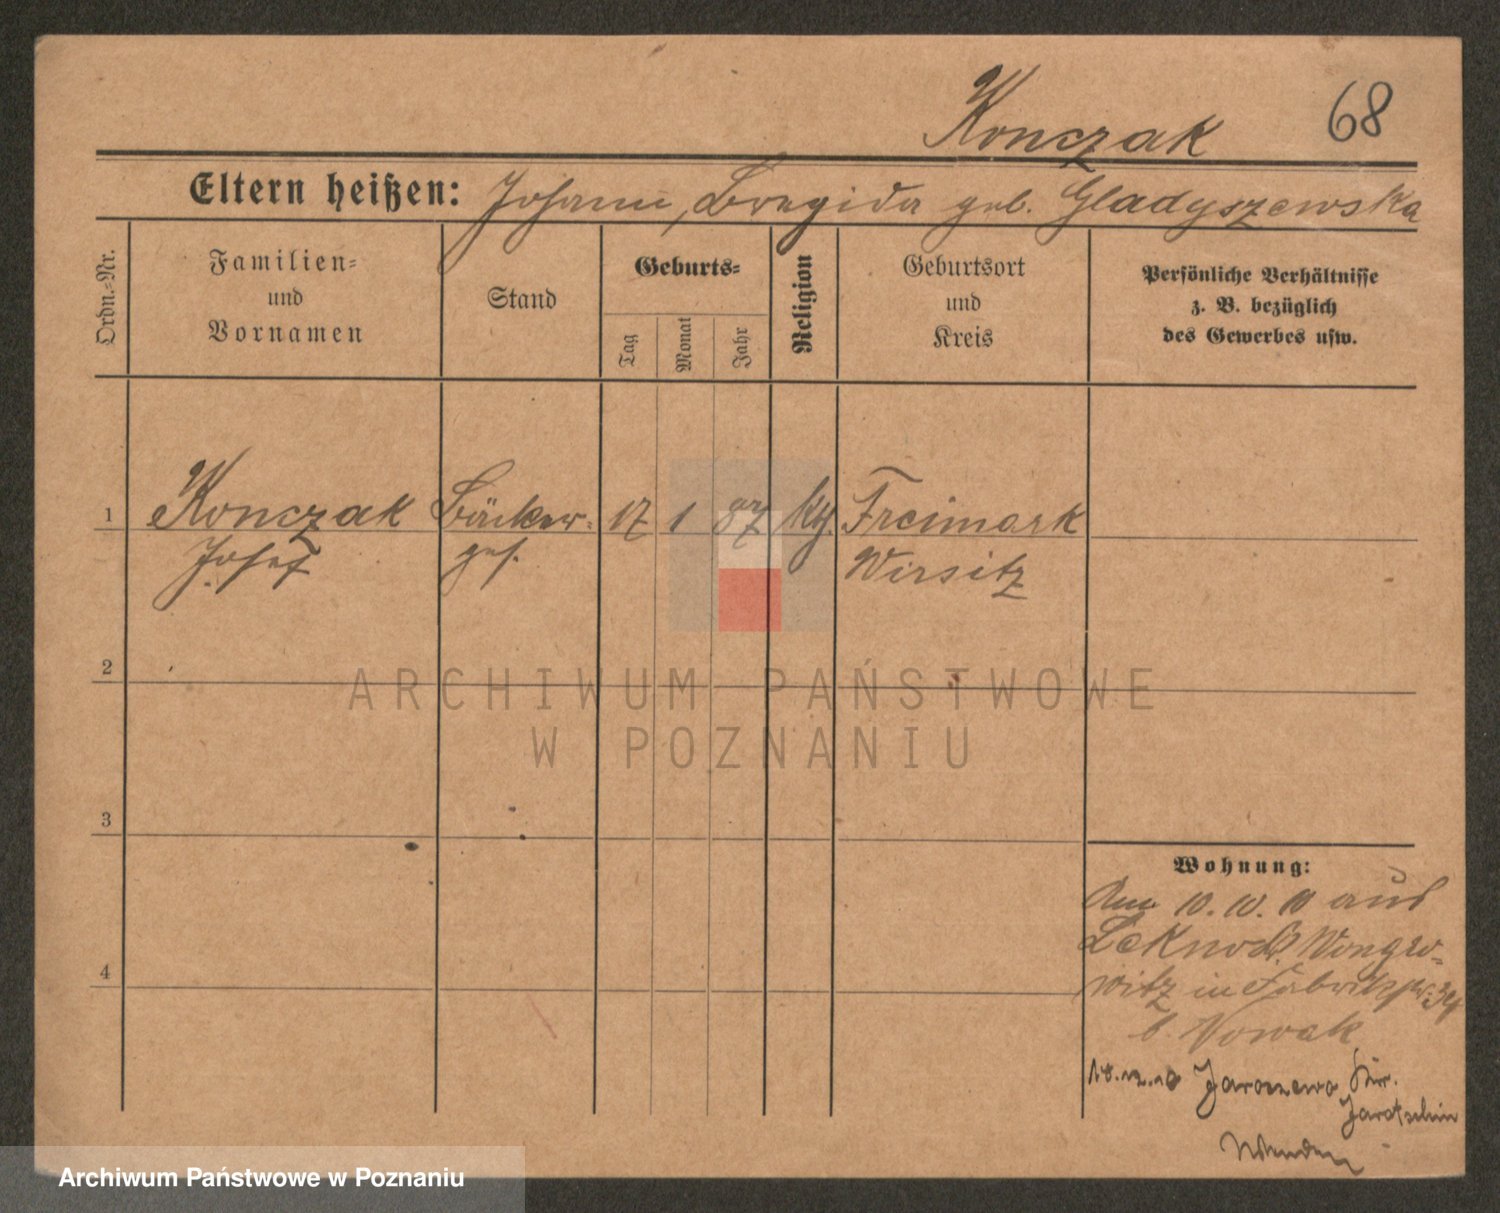 Konczak 68
Eltern heißen: Johann, Bregida geb. Gladyszewska
Ordn.-Nr.
Familien-
und
Vornamen
Stand
Geburts-
Tag
Monat
Jahr
Religion
Geburtsort
und
Kreis
Persönliche Verhältnisse
z. B. bezüglich
des Gewerbes usw.
1 Konczak Bäcker- 17 1 87 kth. Freimark
Josef ges. Wirsitz
2
ARCHIWUM PAŃSTWOWE
W POZNANIU
3
Wohnung:
Am 10.10.10 aus
Leknod. Wongro-
4
witz in Fabrikstr. 34
b. Nowak
18.12.10 Jaroczewo Kr.
Jarotschin
Wenden
Archiwum Państwowe w Poznaniu